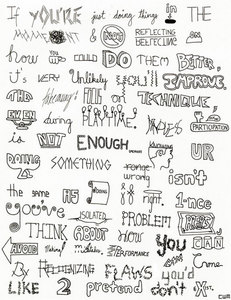 If YOU'RE just doing things in THE
MOMENT & NOT REFLECTING
how YOU could DO THEM BETTER,
it's VERY Unlikely YOU'LL IMPROVE.
THE ALL OF TECHNIQUE,
EVEN during PLAYTIME. PARTICIPATION
is NOT ENOUGH. UR
DOING SOMETHING wrong isn't
the same AS DOING it right. 1-nce
you've ISOLATED PROBLEM
THINK ABOUT HOW YOU CAN
AVOID Making mistakes. PERFORMANCE Come
By RECOGNIZING FLAWS you'd
LIKE 2 pretend don't